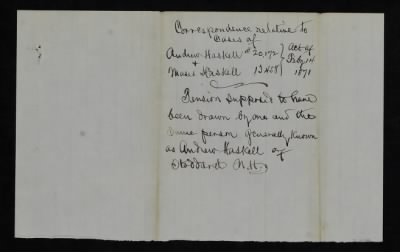 Correspondence relative to
Cases of
Andrew Haskell # 20,172 } Act of
& } Feby 14
Moses Haskell 13458 } 1871
Pension supposed to have
been drawn by one and the
same person generally known
as Andrew Haskell of
Stoddard N.H.